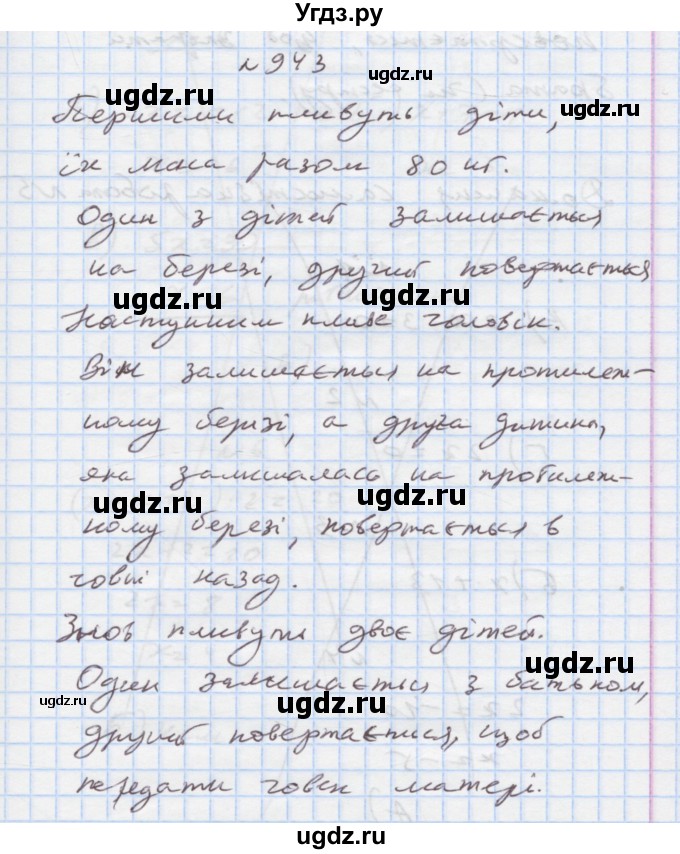 Угдз.ру
№943
Першими пливуть діти,
їх маса разом 80 кг.
Один з дітей залишається
на березі, другий повертається
Наступним пливе чоловік.
Він залишається на протилеж-
ному березі, а друга дитина,
яка залишалась на протилеж-
ному березі, повертається в
човні назад.
Знов пливуть двоє дітей.
Один залишається з батьком,
другий повертається, щоб
передати човен матері.
ugdz.ru
ugdz.ru
ugdz.ru
ugdz.ru
ugdz.ru
ugdz.ru
ugdz.ru
ugdz.ru
ugdz.ru
ugdz.ru
ugdz.ru
ugdz.ru
ugdz.ru
ugdz.ru